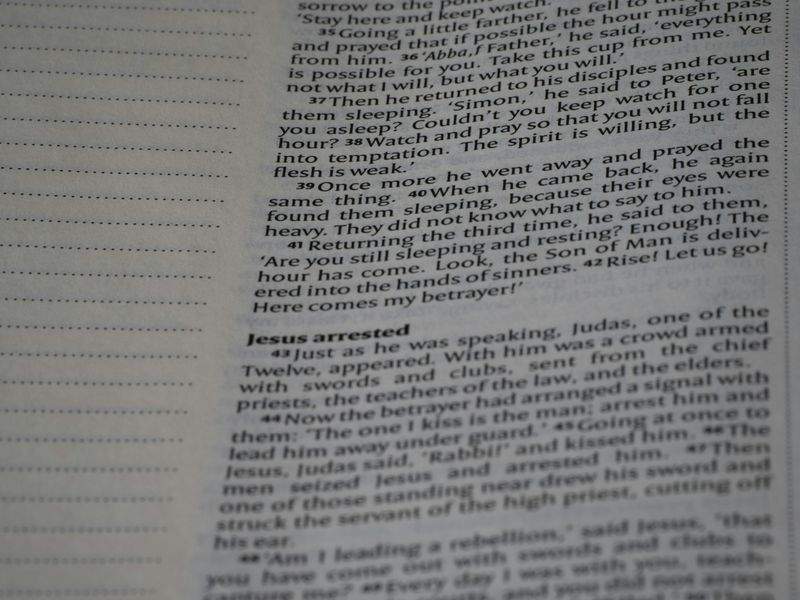 sorrow to the point
'Stay here and keep watch.'
35 Going a little farther, he fell to the
and prayed that if possible the hour might pass
from him. 36 'Abba,f Father,' he said, 'everything
is possible for you. Take this cup from me. Yet
not what I will, but what you will.'
37 Then he returned to his disciples and found
them sleeping. 'Simon,' he said to Peter, 'are
you asleep? Couldn't you keep watch for one
hour? 38 Watch and pray so that you will not fall
into temptation. The spirit is willing, but the
flesh is weak.'
39 Once more he went away and prayed the
same thing. 40 When he came back, he again
found them sleeping, because their eyes were
heavy. They did not know what to say to him.
41 Returning the third time, he said to them,
'Are you still sleeping and resting? Enough! The
hour has come. Look, the Son of Man is deliv-
ered into the hands of sinners. 42 Rise! Let us go!
Here comes my betrayer!'
Jesus arrested
43 Just as he was speaking, Judas, one of the
Twelve, appeared. With him was a crowd armed
with swords and clubs, sent from the chief
priests, the teachers of the law, and the elders.
44 Now the betrayer had arranged a signal with
them: 'The one I kiss is the man; arrest him and
lead him away under guard.' 45 Going at once to
Jesus, Judas said, 'Rabbi!' and kissed him. 46 The
men seized Jesus and arrested him. 47 Then
one of those standing near drew his sword and
struck the servant of the high priest, cutting off
his ear.
48 'Am I leading a rebellion,' said Jesus, 'that
you have come out with swords and clubs to
capture me? 49 Every day I was with you, teach-
and you did not arrest